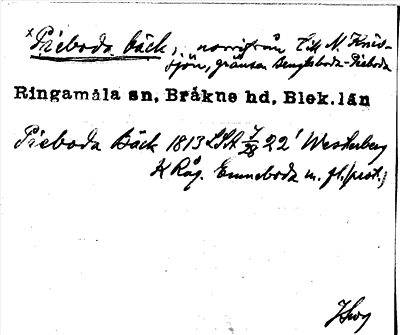 x Pieboda bäck, norrifrån till N. Kroks-
sjön, gränsen Bengtsboda-Pieboda
Ringamåla sn, Bräkne hd, Blek.län
Pieboda Bäck 1813 LSA 7/28 22 Westerberg
K Råg. Emneboda m. fl. (prot.)